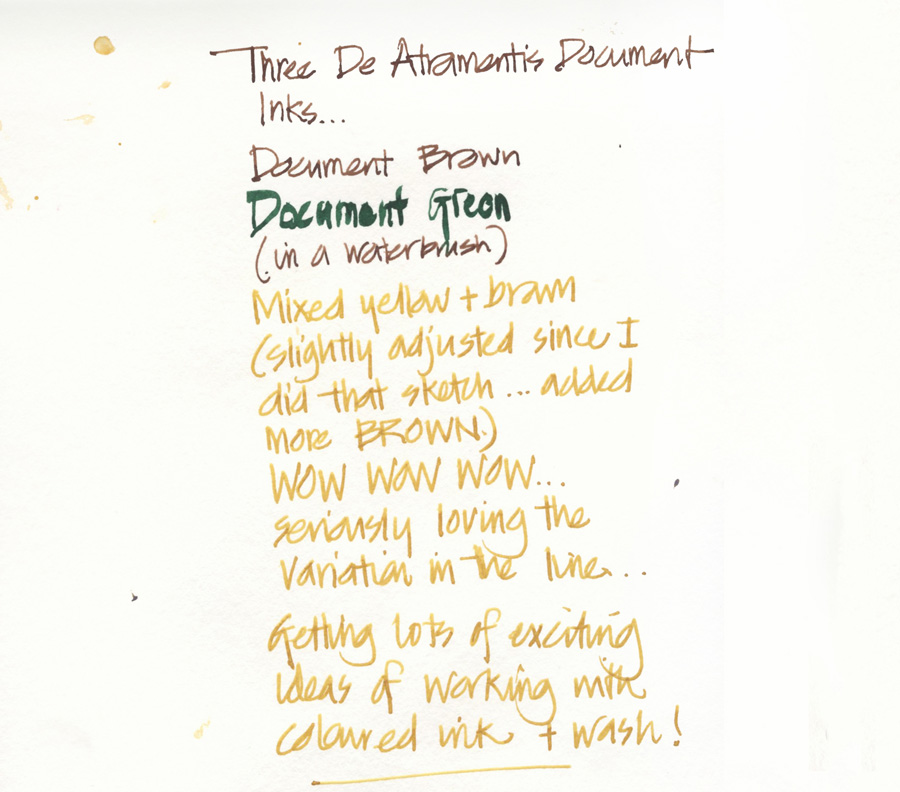 Three De Atramentis Document
Inks...
Document Brown
Document Green
(in a waterbrush)
Mixed yellow + brown
(slightly adjusted since I
did that sketch ... added
more BROWN.)
WOW WOW WOW...
seriously loving the
variation in the line...
Getting lots of exciting
ideas of working with
coloured ink + wash!